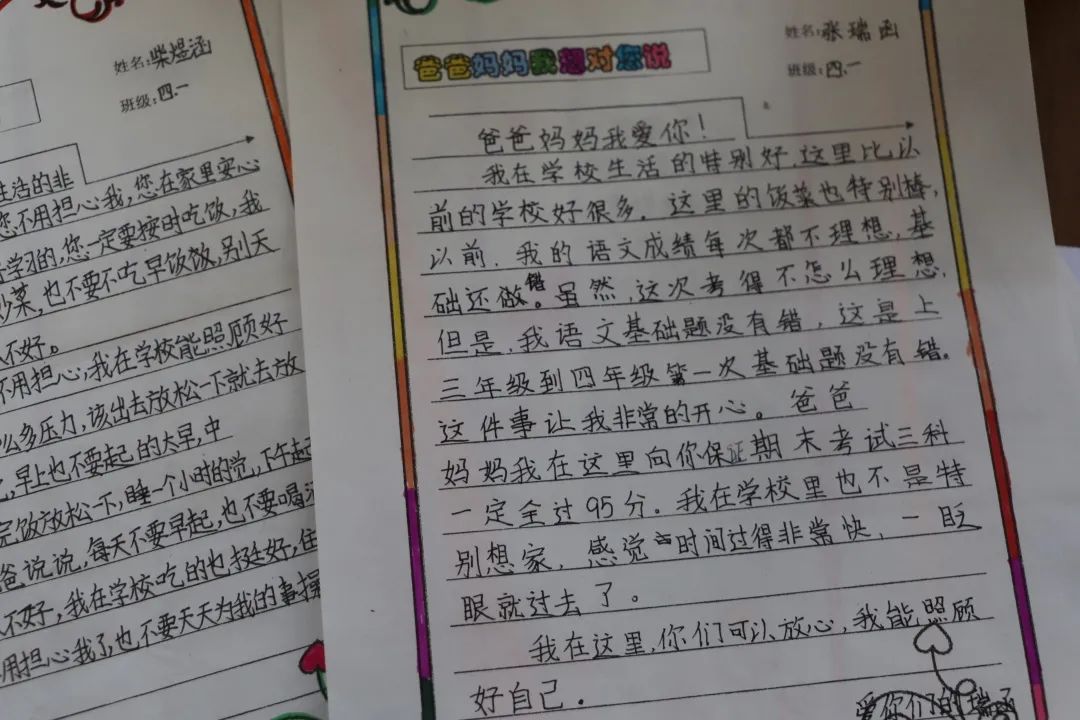 姓名:柴煜涵
班级:四.一
生活的非
您不用担心我,您在家里安心
学习的,您一定要按时吃饭,我
炒菜,也不要不吃早饭饭,别天
不好。
不用担心,我在学校能照顾好
么多压力,该出去放松一下就去放
早上也不要起的太早,中
完饭放松一下,睡一个小时的觉,下午起
爸说说,每天不要早起,也不要喝
不好,我在学校吃的也挺好,住
用担心我了,也不要天天为我的事操
爸爸妈妈我想对您说
姓名:张瑞函
班级:四.一
爸爸妈妈我爱你!
我在学校生活的特别好.这里比以
前的学校好很多.这里的饭菜也特别棒,
以前.我的语文成绩每次都不理想,基
础还做错。虽然,这次考得不怎么理想.
但是,我语文基础题没有错,这是上
三年级到四年级第一次基础题没有错。
这件事让我非常的开心。爸爸
妈妈我在这里向你保证期末考试三科
一定全过95分。我在学校里也不是特
别想家,感觉时间过得非常快,一眨
眼就过去了。
我在这里,你们可以放心,我能照顾
好自己.
爱你们的瑞函